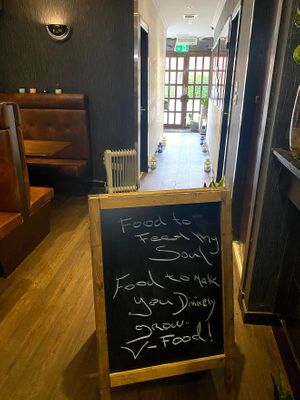 Food to
Feed My
Soul
Food to Make
you Divinely
grow.
V-Food!